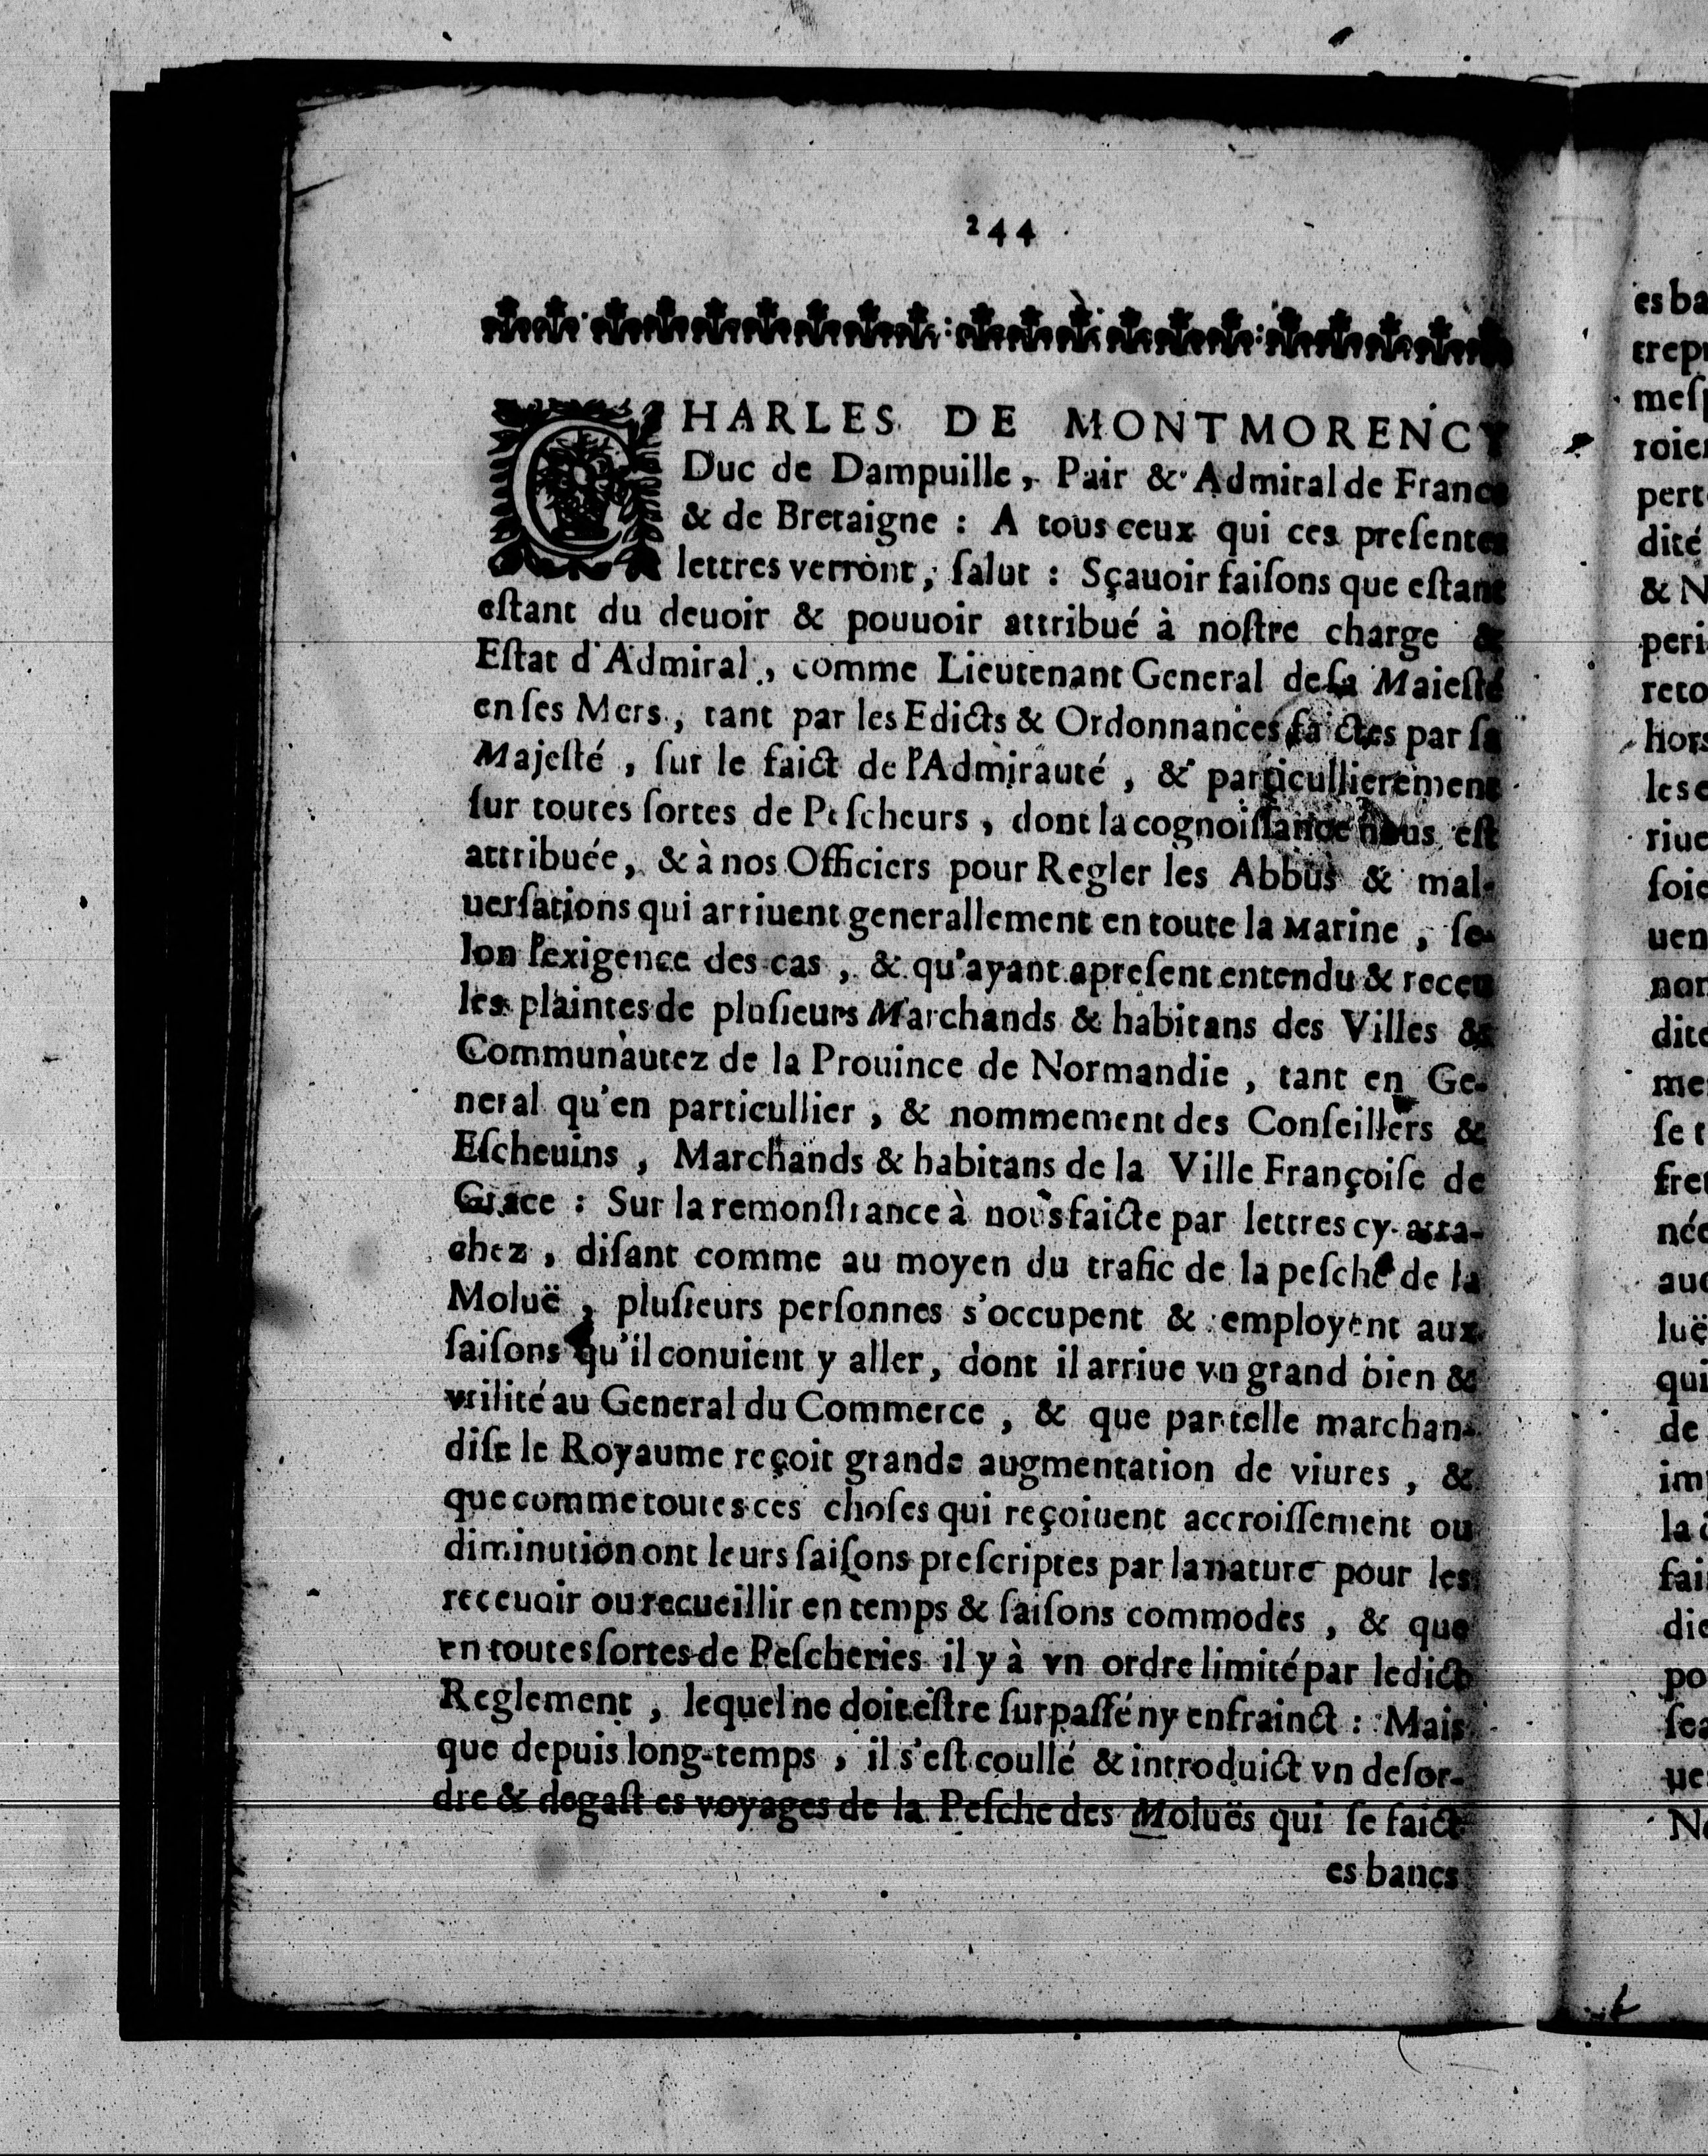 244
CHARLES DE MONTMORENCY
Duc de Dampuille, Pair & Admiral de France
& de Bretaigne : A tous ceux qui ces preſentes
lettres verront, ſalut : Sçauoir faiſons que eſtant
eſtant du deuoir & pouuoir attribué à noſtre charge &
Eſtat d'Admiral, comme Lieutenant General de ſa Maieſté
en ſes Mers, tant par les Edicts & Ordonnances faictes par ſa
Majeſté, ſur le faict de l'Admirauté, & particullierement
ſur toutes ſortes de Peſcheurs, dont la cognoiſſance nous eſt
attribuée, & à nos Officiers pour Regler les Abbus & mal-
uerſations qui arriuent generallement en toute la Marine, ſe-
lon l'exigence des cas, & qu'ayant apreſent entendu & receu
les plaintes de pluſieurs Marchands & habitans des Villes &
Communautez de la Prouince de Normandie, tant en Ge-
neral qu'en particullier, & nommement des Conſeillers &
Eſcheuins, Marchands & habitans de la Ville Françoiſe de
Grace : Sur la remonſtrance à nous faicte par lettres cy atta-
chez, diſant comme au moyen du trafic de la peſche de la
Moluë, pluſieurs perſonnes s'occupent & employent aux
ſaiſons qu'il conuient y aller, dont il arriue vn grand bien &
vtilité au General du Commerce, & que par telle marchan-
diſe le Royaume reçoit grande augmentation de viures, &
que comme toutes ces choſes qui reçoiuent accroiſſement ou
diminution ont leurs ſaiſons preſcriptes par la nature pour les
receuoir ou recueillir en temps & ſaiſons commodes, & que
en toutes ſortes de Peſcheries il y à vn ordre limité par ledict
Reglement, lequel ne doit eſtre ſurpaſſé ny enfrainct : Mais
que depuis long-temps, il s'eſt coullé & introduict vn deſor-
dre & degaſt es voyages de la Peſche des Moluës qui ſe faict
es bancs